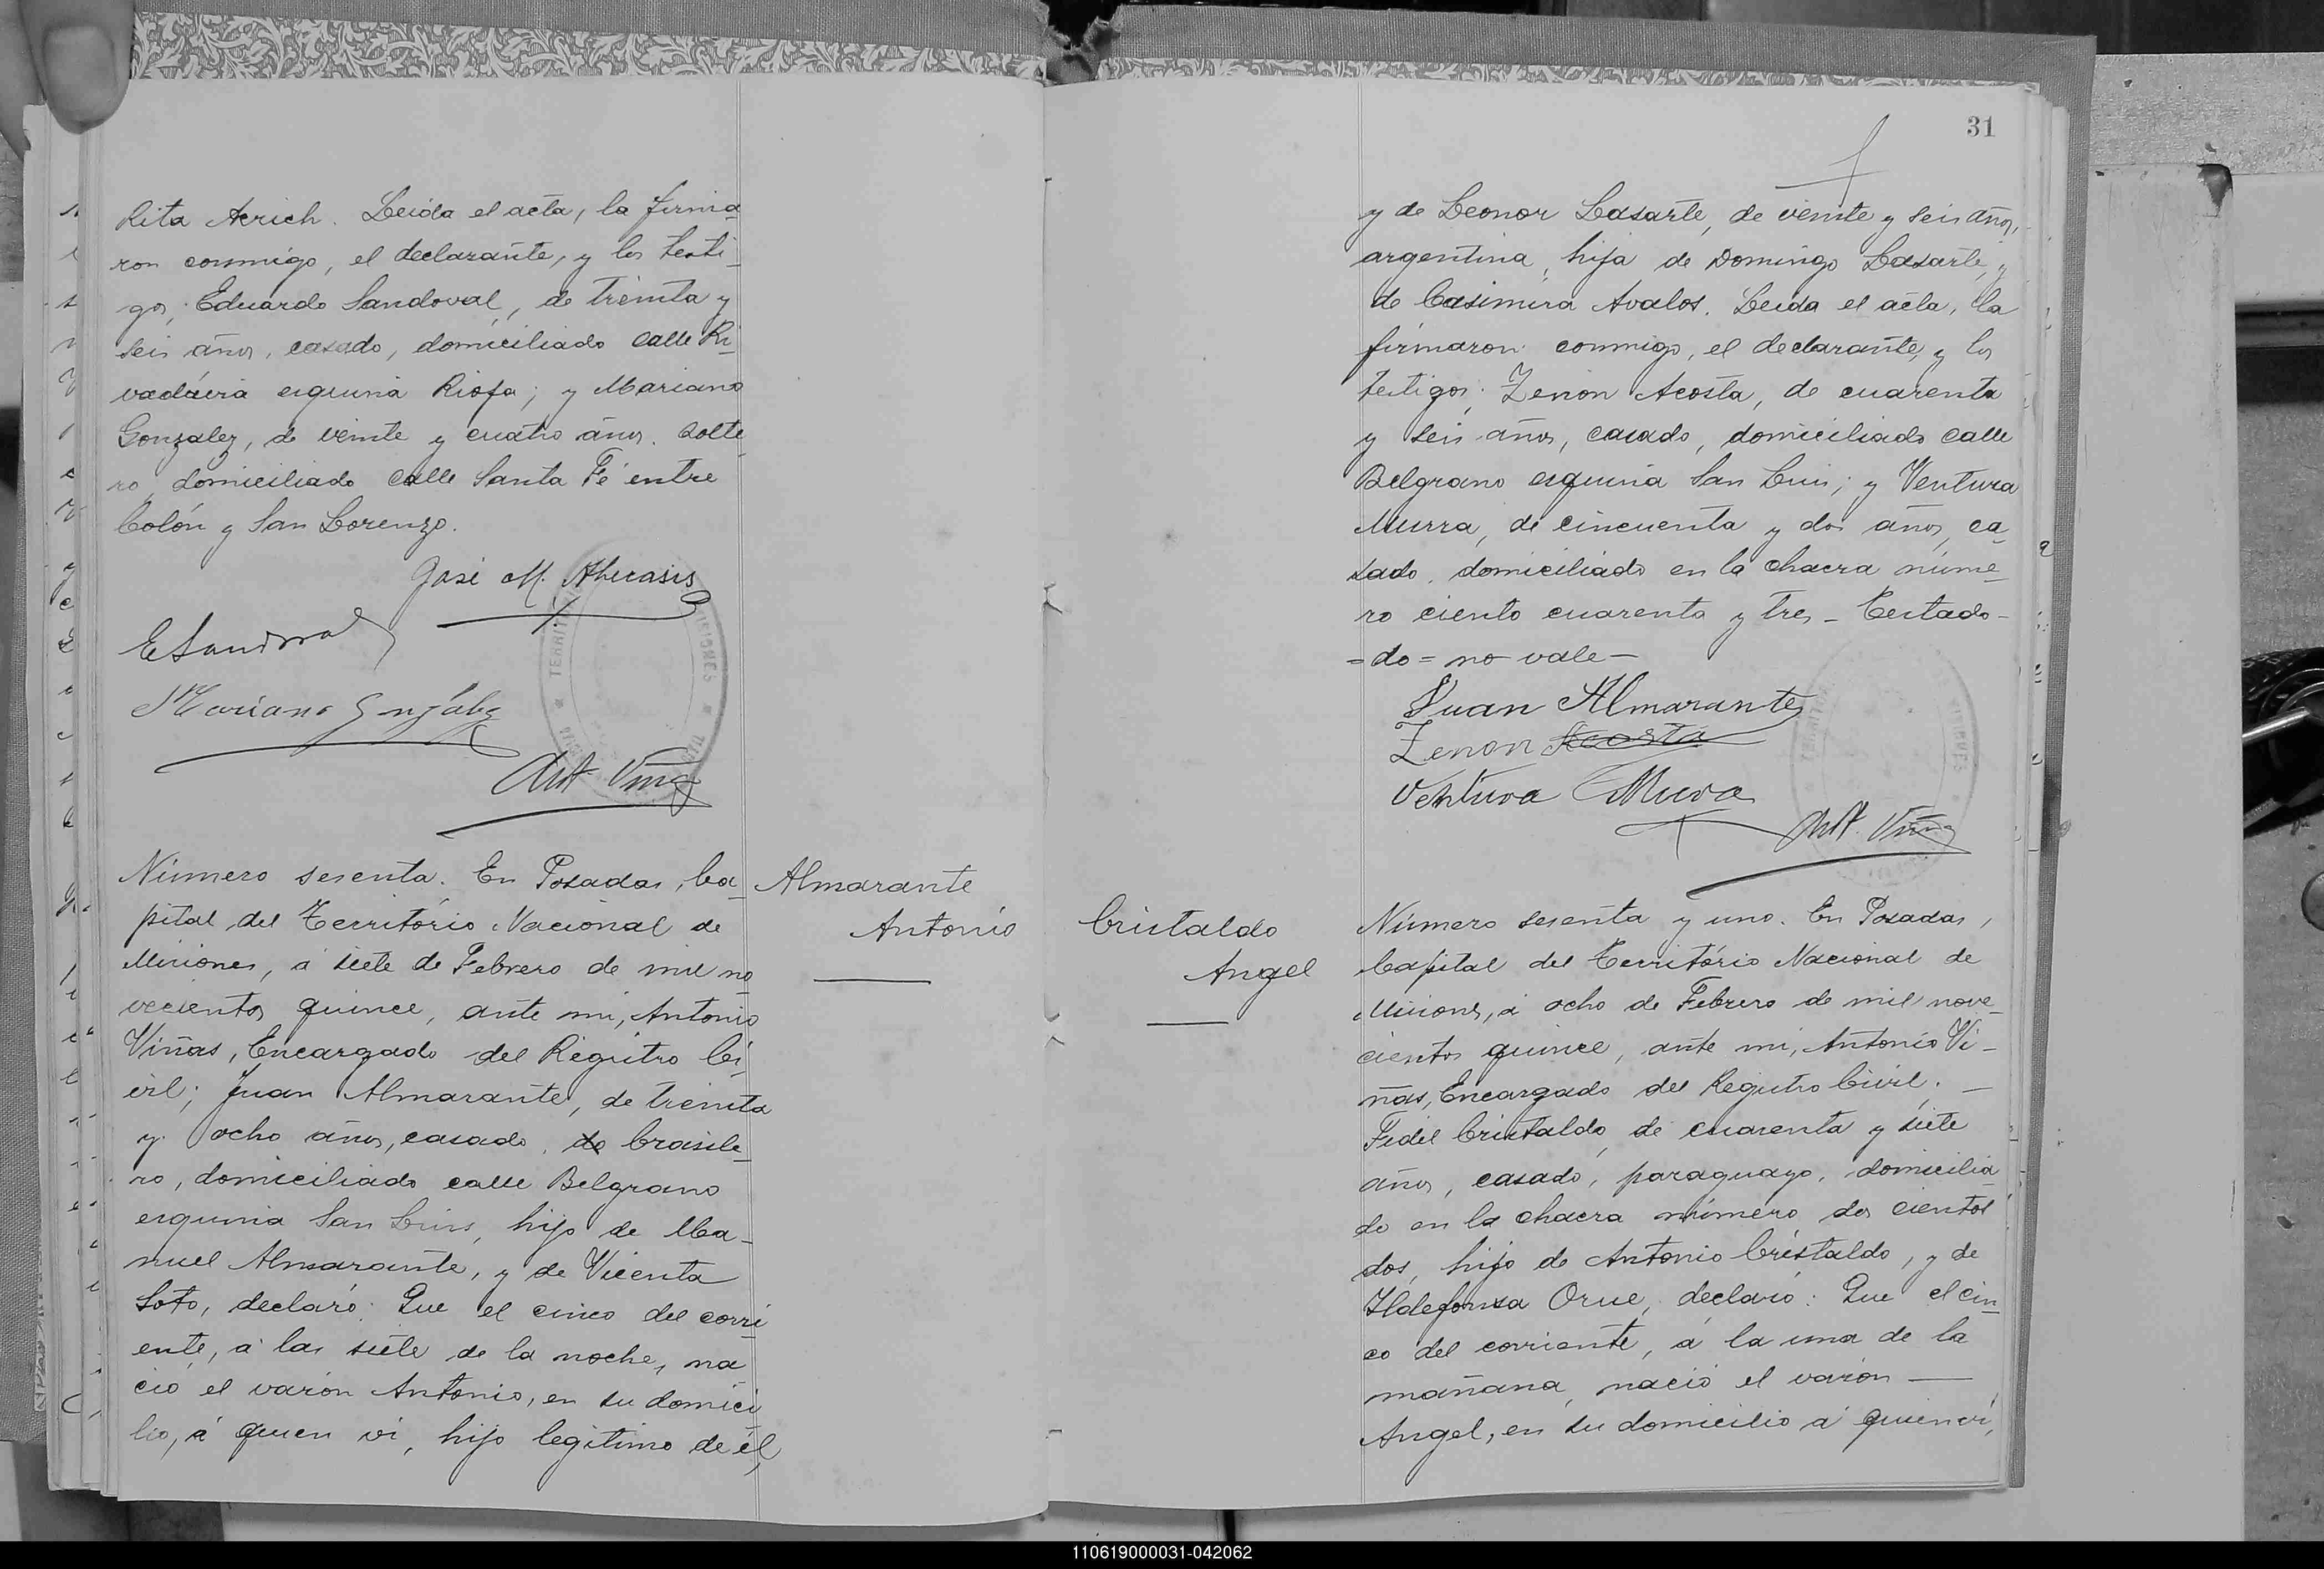 Rita Aerich. Leida el acta, la firma
ron conmigo, el declarante, y los testi
gos, Eduardo Sandoval, de treinta y
seis años, casado, domiciliado calle Ri
vadavia esquina Rioja; y Mariano
Gonzalez, de veinte y cuatro años. solte
ro, domiciliado calle Santa Fé entre
Colón y San Lorenzo.
José M.
E Sandoval
Mariano González
Ant Viñas
Número sesenta. En Posadas, Ca
pital del Território Nacional de
Misiones, á siete de Febrero de mil no
vecientos quince, ante mi, Antonio
Viñas, Encargado del Registro Ci
vil; Juan Almarante, de treinta
y ocho años, casado, do brasile
ro, domiciliado calle Belgrano
esquina San Luis, hijo de Ma-
nuel Almarante, y de Vicenta
Soto, declaró: Que el cinco del corri
ente, á las siete de la noche, na
ció el varón Antonio, en su domici
lio, á quien ví, hijo legítimo de él,
Almarante
Antonio
31
y de Leonor Lasarte, de veinte y seis años,
argentina, hija de Domingo Lasarte, y
de Casimira Avalos. Leida el acta, la
firmaron conmigo, el declarante, y los
testigos: Zenón Acosta, de cuarenta
y seis años, casado, domiciliado calle
Belgrano esquina San Luis; y Ventura
Murra, de cincuenta y dos años, ca
sado, domiciliado en la chacra núme
ro ciento cuarenta y tres - Testado-
=do= no vale-
Juan Almarante
Zenon Acosta
Ventura Murra
Ant. Viñas
Cristaldo
Angel
Número sesenta y uno. En Posadas,
Capital del Território Nacional de
Misiones, á ocho de Febrero de mil nove-
cientos quince, ante mi, Antonio Vi-
ñas, Encargado del Registro Civil; -
Fidel Cristaldo, de cuarenta y siete
años, casado, paraguayo, domicilia
do en la chacra número dos cientos
dos, hijo de Antonio Cristaldo, y de
Ildefonsa Orue, declaró: Que el cin
co del corriente, á la una de la
mañana, nació el varón —
Angel, en su domicilio á quien ví,
110619000031-042062